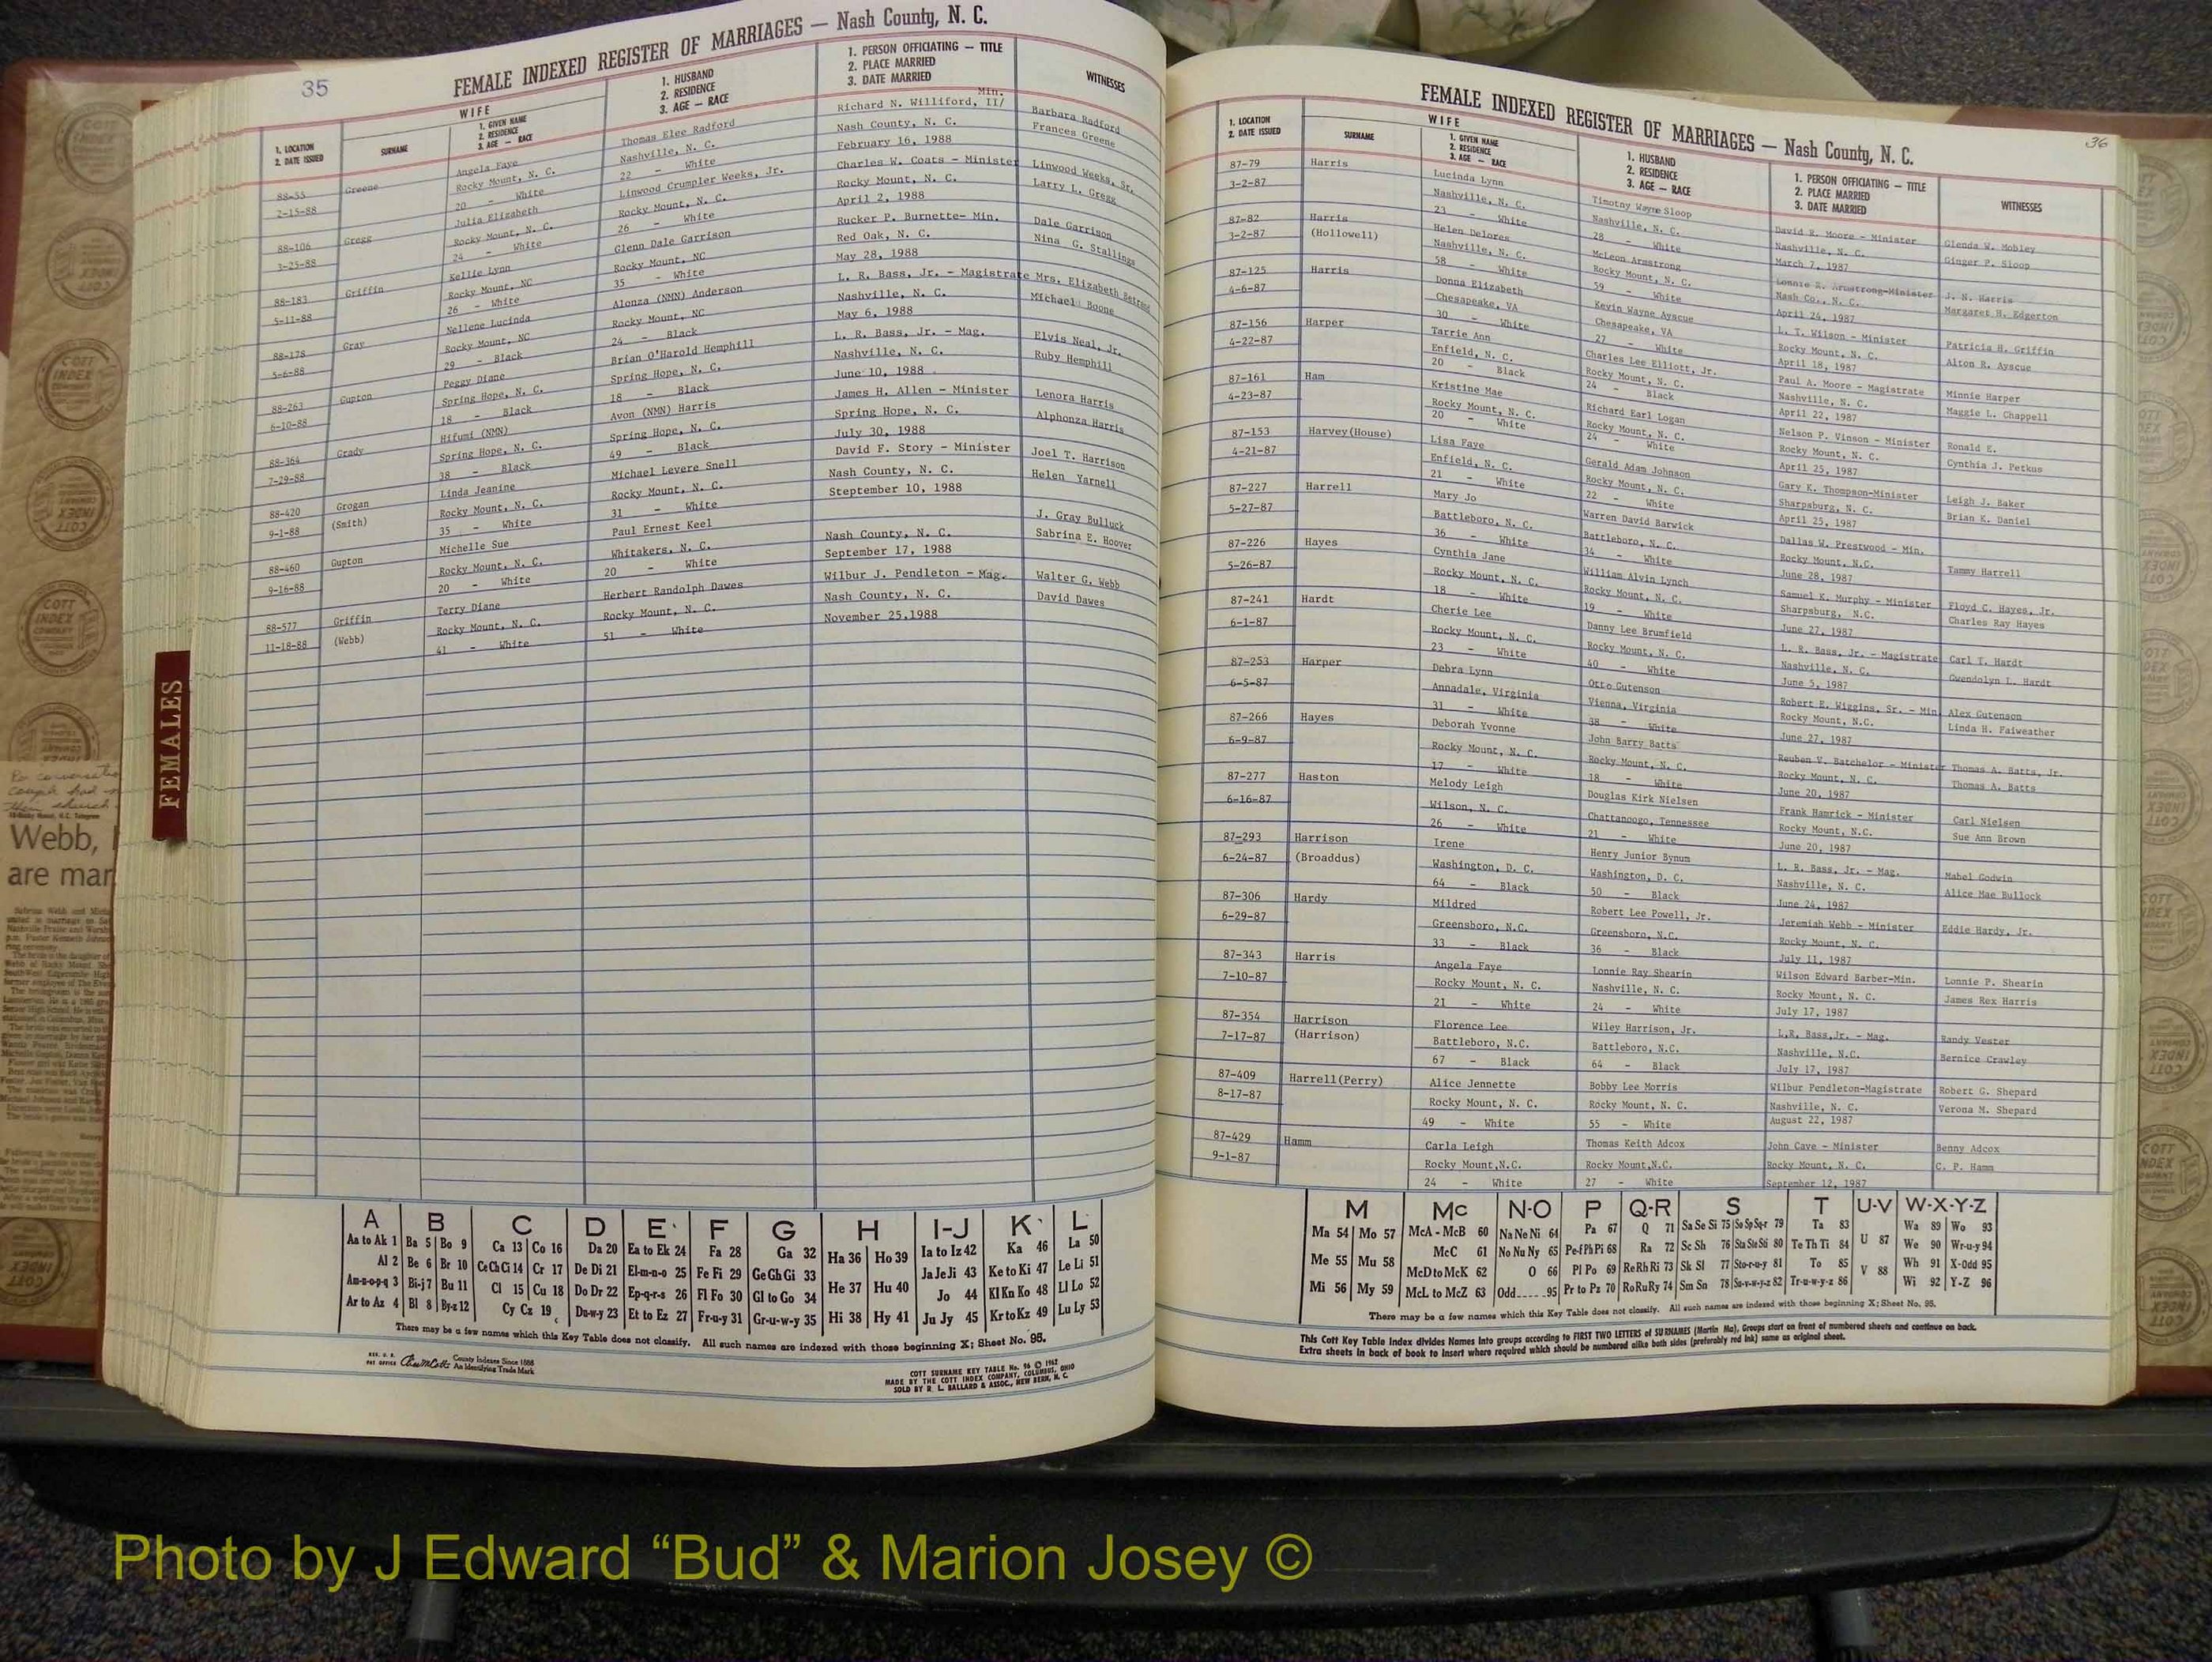 35
FEMALE INDEXED REGISTER OF MARRIAGES — Nash County, N. C.
1. LOCATION
2. DATE ISSUED
SURNAME
WIFE
1. GIVEN NAME
2. RESIDENCE
3. AGE — RACE
1. HUSBAND
2. RESIDENCE
3. AGE — RACE
1. PERSON OFFICIATING — TITLE
2. PLACE MARRIED
3. DATE MARRIED
WITNESSES
88-55 Greene Angela Faye Thomas Elee Radford Richard N. Williford, II/ Min. Barbara Radford
2-15-88 Rocky Mount, N. C. Nashville, N. C. Nash County, N. C. Frances Greene
20 - White 22 - White February 16, 1988
88-106 Gregg Julia Elizabeth Linwood Crumpler Weeks, Jr. Charles W. Coats - Minister Linwood Weeks, Sr.
3-25-88 Rocky Mount, N. C. Rocky Mount, N. C. Rocky Mount, N. C. Larry L. Gregg
24 - White 26 - White April 2, 1988
88-183 Griffin Kellie Lynn Glenn Dale Garrison Rucker P. Burnette- Min. Dale Garrison
5-11-88 Rocky Mount, NC Rocky Mount, NC Red Oak, N. C. Nina G. Stallings
26 - White 35 - White May 28, 1988
88-178 Gray Nellene Lucinda Alonza (NMN) Anderson L. R. Bass, Jr. - Magistrate Mrs. Elizabeth
5-6-88 Rocky Mount, NC Rocky Mount, NC Nashville, N. C. Michael Boone
29 - Black 24 - Black May 6, 1988
88-263 Gupton Peggy Diane Brian O'Harold Hemphill L. R. Bass, Jr. - Mag. Elvis Neal, Jr.
6-10-88 Spring Hope, N. C. Spring Hope, N. C. Nashville, N. C. Ruby Hemphill
18 - Black 18 - Black June 10, 1988
88-364 Grady Hifumi (NMN) Avon (NMN) Harris James H. Allen - Minister Lenora Harris
7-29-88 Spring Hope, N. C. Spring Hope, N. C. Spring Hope, N. C. Alphonza Harris
38 - Black 49 - Black July 30, 1988
88-420 Grogan Linda Jeanine Michael Levere Snell David F. Story - Minister Joel T. Harrison
9-1-88 (Smith) Rocky Mount, N. C. Rocky Mount, N. C. Nash County, N. C. Helen Yarnell
35 - White 31 - White Steptember 10, 1988
88-460 Gupton Michelle Sue Paul Ernest Keel J. Gray Bulluck
9-16-88 Rocky Mount, N. C. Whitakers, N. C. Nash County, N. C. Sabrina E. Hoover
20 - White 20 - White September 17, 1988
88-577 Griffin Terry Diane Herbert Randolph Dawes Wilbur J. Pendleton - Mag. Walter G. Webb
11-18-88 (Webb) Rocky Mount, N. C. Rocky Mount, N. C. Nash County, N. C. David Dawes
41 - White 51 - White November 25,1988
FEMALES
Webb,
are mar
A B C D E F G H I-J K L
Aa to Ak 1 Ba 5 Bo 9 Ca 13 Co 16 Da 20 Ea to Ek 24 Fa 28 Ga 32 Ha 36 Ho 39 Ia to Iz 42 Ka 46 La 50
Al 2 Be 6 Br 10 Ce Ch Ci 14 Cr 17 De Di 21 El-m-n-o 25 Fe Fi 29 Ge Gh Gi 33 He 37 Hu 40 Ja Je Ji 43 Ke to Ki 47 Le Li 51
Am-n-o-p-q 3 Bi-j 7 Bu 11 Cl 15 Cu 18 Do Dr 22 Ep-q-r-s 26 Fl Fo 30 Gl to Go 34 Hi 38 Hy 41 Jo 44 Kl Kn Ko 48 Ll Lo 52
Ar to Az 4 Bl 8 By-z 12 Cy Cz 19 Du-w-y 23 Et to Ez 27 Fr-u-y 31 Gr-u-w-y 35 Ju Jy 45 Kr to Kz 49 Lu Ly 53
There may be a few names which this Key Table does not classify. All such names are indexed with those beginning X; Sheet No. 95.
County Indexes Since 1888
An Identifying Trade Mark
COTT SURNAME KEY TABLE No. 96 © 1962
MADE BY THE COTT INDEX COMPANY, COLUMBUS, OHIO
SOLD BY R. L. BALLARD & ASSOC., NEW BERN, N. C.
36
FEMALE INDEXED REGISTER OF MARRIAGES — Nash County, N. C.
1. LOCATION
2. DATE ISSUED
SURNAME
WIFE
1. GIVEN NAME
2. RESIDENCE
3. AGE — RACE
1. HUSBAND
2. RESIDENCE
3. AGE — RACE
1. PERSON OFFICIATING — TITLE
2. PLACE MARRIED
3. DATE MARRIED
WITNESSES
87-79 Harris Lucinda Lynn Timothy Wayne Sloop David R. Moore - Minister Glenda W. Mobley
3-2-87 Nashville, N. C. Nashville, N. C. Nashville, N. C. Ginger P. Sloop
23 - White 28 - White March 7, 1987
87-82 Harris Helen Delores McLeon Armstrong Lonnie R. Armstrong-Minister J. N. Harris
3-2-87 (Hollowell) Nashville, N. C. Rocky Mount, N. C. Nash Co., N. C. Margaret H. Edgerton
58 - White 59 - White April 24, 1987
87-125 Harris Donna Elizabeth Kevin Wayne Ayscue L. T. Wilson - Minister Patricia H. Griffin
4-6-87 Chesapeake, VA Chesapeake, VA Rocky Mount, N. C. Alton R. Ayscue
30 - White 27 - White April 18, 1987
87-156 Harper Tarrie Ann Charles Lee Elliott, Jr. Paul A. Moore - Magistrate Minnie Harper
4-22-87 Enfield, N. C. Rocky Mount, N. C. Nashville, N. C. Maggie L. Chappell
20 - Black 24 - Black April 22, 1987
87-161 Ham Kristine Mae Richard Earl Logan Nelson P. Vinson - Minister Ronald E.
4-23-87 Rocky Mount, N. C. Rocky Mount, N. C. Rocky Mount, N. C. Cynthia J. Petkus
20 - White 24 - White April 25, 1987
87-153 Harvey(House) Lisa Faye Gerald Adam Johnson Gary K. Thompson-Minister Leigh J. Baker
4-21-87 Enfield, N. C. Rocky Mount, N. C. Sharpsburg, N. C. Brian K. Daniel
21 - White 22 - White April 25, 1987
87-227 Harrell Mary Jo Warren David Barwick Dallas W. Prestwood - Min.
5-27-87 Battleboro, N. C. Battleboro, N. C. Rocky Mount, N.C. Tammy Harrell
36 - White 34 - White June 28, 1987
87-226 Hayes Cynthia Jane William Alvin Lynch Samuel K. Murphy - Minister Floyd C. Hayes, Jr.
5-26-87 Rocky Mount, N. C. Rocky Mount, N. C. Sharpsburg, N.C. Charles Ray Hayes
18 - White 19 - White June 27, 1987
87-241 Hardt Cherie Lee Danny Lee Brumfield L. R. Bass, Jr. - Magistrate Carl T. Hardt
6-1-87 Rocky Mount, N. C. Rocky Mount, N. C. Nashville, N. C. Gwendolyn L. Hardt
23 - White 40 - White June 5, 1987
87-253 Harper Debra Lynn Otto Gutenson Robert E. Wiggins, Sr. - Min. Alex Gutenson
6-5-87 Annadale, Virginia Vienna, Virginia Rocky Mount, N.C. Linda H. Faiweather
31 - White 38 - White June 27, 1987
87-266 Hayes Deborah Yvonne John Barry Batts Reuben V. Batchelor - Minister Thomas A. Batts, Jr.
6-9-87 Rocky Mount, N. C. Rocky Mount, N. C. Rocky Mount, N. C. Thomas A. Batts
17 - White 18 - White June 20, 1987
87-277 Haston Melody Leigh Douglas Kirk Nielsen Frank Hamrick - Minister Carl Nielsen
6-16-87 Wilson, N. C. Chattanoogo, Tennessee Rocky Mount, N.C. Sue Ann Brown
26 - White 21 - White June 20, 1987
87-293 Harrison Irene Henry Junior Bynum L. R. Bass, Jr. - Mag. Mabel Godwin
6-24-87 (Broaddus) Washington, D. C. Washington, D. C. Nashville, N. C. Alice Mae Bullock
64 - Black 50 - Black June 24, 1987
87-306 Hardy Mildred Robert Lee Powell, Jr. Jeremiah Webb - Minister Eddie Hardy, Jr.
6-29-87 Greensboro, N.C. Greensboro, N.C. Rocky Mount, N. C.
33 - Black 36 - Black July 11, 1987
87-343 Harris Angela Faye Lonnie Ray Shearin Wilson Edward Barber-Min. Lonnie P. Shearin
7-10-87 Rocky Mount, N. C. Nashville, N. C. Rocky Mount, N. C. James Rex Harris
21 - White 24 - White July 17, 1987
87-354 Harrison Florence Lee Wiley Harrison, Jr. L.R. Bass,Jr. - Mag. Randy Vester
7-17-87 (Harrison) Battleboro, N.C. Battleboro, N.C. Nashville, N.C. Bernice Crawley
67 - Black 64 - Black July 17, 1987
87-409 Harrell(Perry) Alice Jennette Bobby Lee Morris Wilbur Pendleton-Magistrate Robert G. Shepard
8-17-87 Rocky Mount, N. C. Rocky Mount, N. C. Nashville, N. C. Verona M. Shepard
49 - White 55 - White August 22, 1987
87-429 Hamm Carla Leigh Thomas Keith Adcox John Cave - Minister Benny Adcox
9-1-87 Rocky Mount,N.C. Rocky Mount,N.C. Rocky Mount, N. C. C. P. Hamm
24 - White 27 - White September 12, 1987
M Mc N-O P Q-R S T U-V W-X-Y-Z
Ma 54 Mo 57 McA - McB 60 Na Ne Ni 64 Pa 67 Q 71 Sa Se Si 75 So Sp Sq-r 79 Ta 83 U 87 Wa 89 Wo 93
Me 55 Mu 58 McC 61 No Nu Ny 65 Pe-f Ph Pi 68 Ra 72 Sc Sh 76 Sta Ste Sti 80 Te Th Ti 84 V 88 We 90 Wr-u-y 94
Mi 56 My 59 McD to McK 62 O 66 Pl Po 69 Re Rh Ri 73 Sk Sl 77 Sto-r-u-y 81 To 85 Wh 91 X-Odd 95
McL to McZ 63 Odd 95 Pr to Pz 70 Ro Ru Ry 74 Sm Sn 78 Su-v-w-y-z 82 Tr-u-w-y-z 86 Wi 92 Y-Z 96
There may be a few names which this Key Table does not classify. All such names are indexed with those beginning X; Sheet No. 95.
This Cott Key Table Index divides Names into groups according to FIRST TWO LETTERS of SURNAMES (Martin Ma), Groups start on front of numbered sheets and continue on back.
Extra sheets in back of book to insert where required which should be numbered alike both sides (preferably red ink) same as original sheet.
Photo by J Edward “Bud” & Marion Josey ©